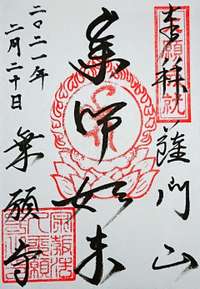 奉拝 薩門山
薬師如来
二〇二一年
二月二十日
薬願寺